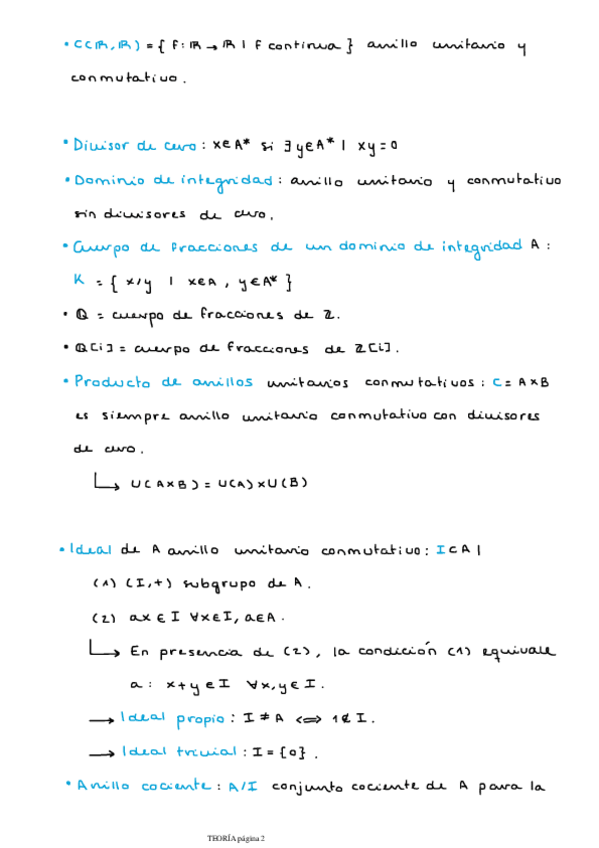 • C(ℝ,ℝ) = { F: ℝ → ℝ | F continua } anillo unitario y
conmutativo.
• Divisor de cero: x∈A* si ∃ y∈A* | xy=0
• Dominio de integridad: anillo unitario y conmutativo
sin divisores de cero.
• Cuerpo de fracciones de un dominio de integridad A:
K = { x/y | x∈A, y∈A* }
• ℚ = cuerpo de fracciones de ℤ.
• ℚ[i] = cuerpo de fracciones de ℤ[i].
• Producto de anillos unitarios conmutativos: C = A×B
es siempre anillo unitario conmutativo con divisores
de cero.
↳ U(A×B) = U(A)×U(B)
• Ideal de A anillo unitario conmutativo: I⊂A |
(1) (I,+) subgrupo de A.
(2) ax ∈ I ∀x∈I, a∈A.
↳ En presencia de (2), la condición (1) equivale
a: x+y ∈ I ∀x,y ∈ I.
→ Ideal propio: I ≠ A ⟺ 1∉I.
→ Ideal trivial: I = {0}.
• Anillo cociente: A/I conjunto cociente de A para la
TEORÍA página 2